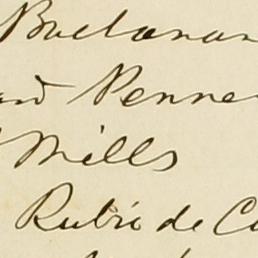 Buchanan
Penne
Mills
Rubio de C